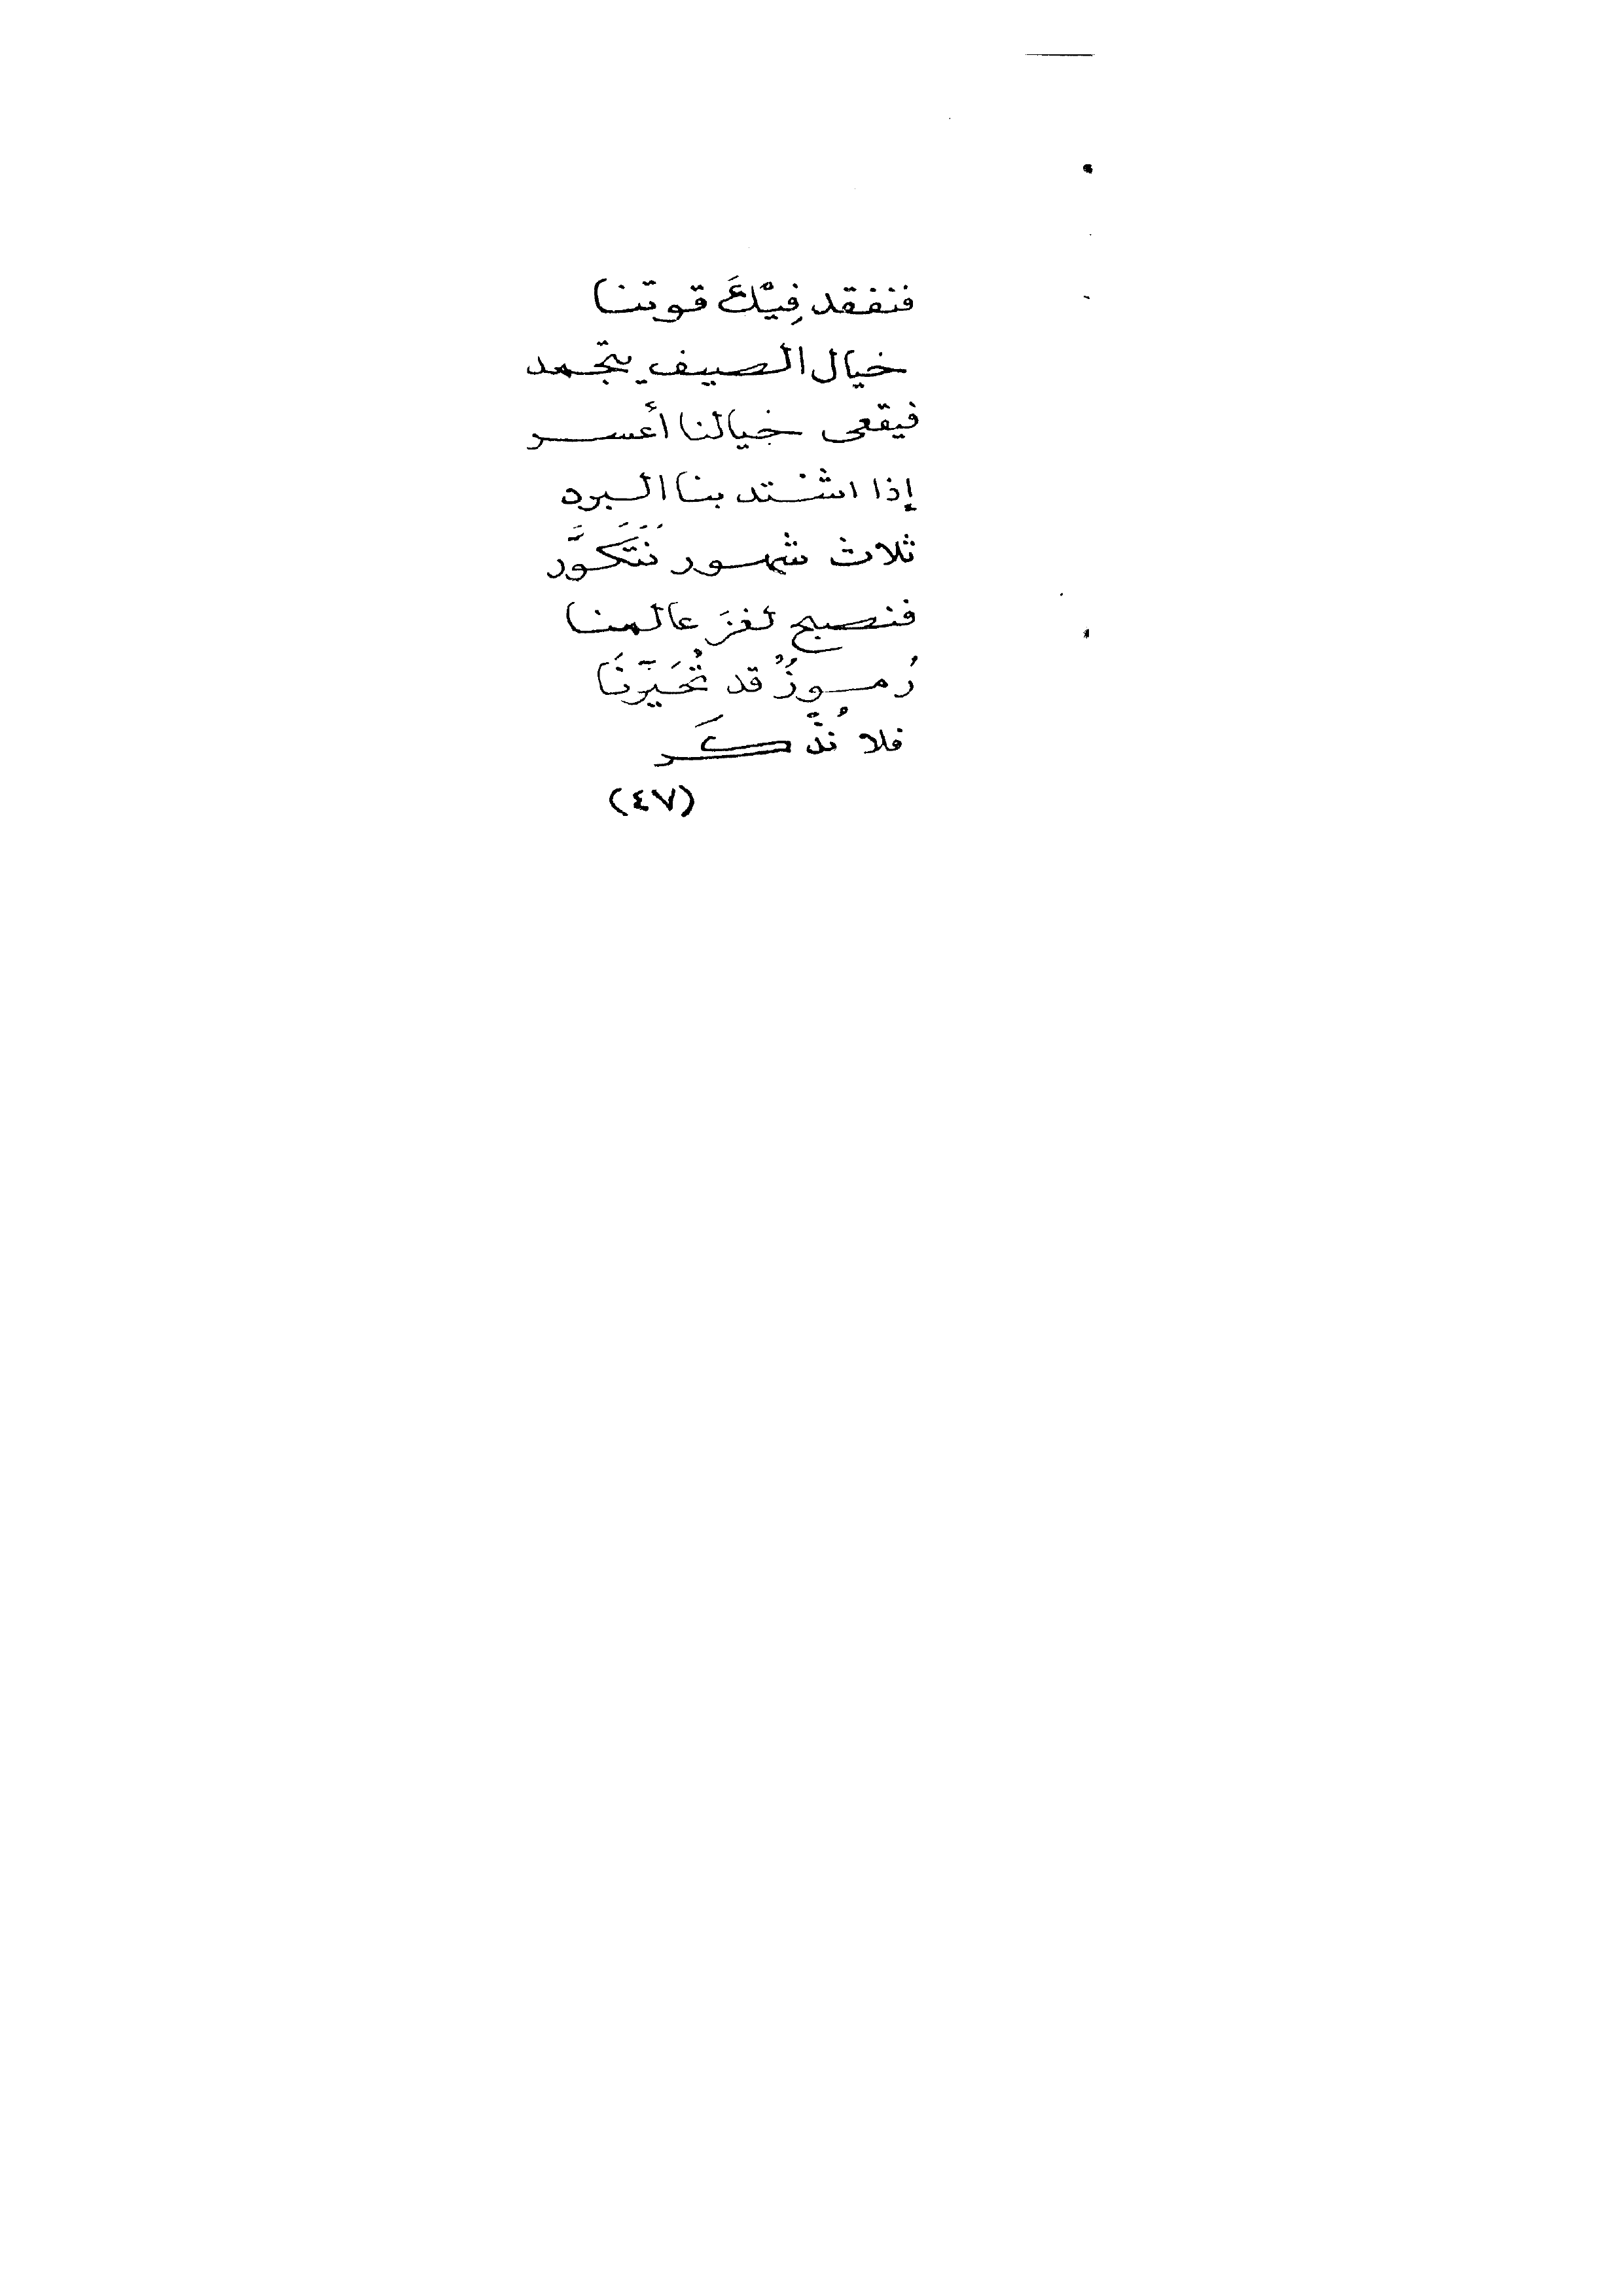 فنفقد فِيْكَ قوتنا
خيال الصيف يتجمد
فيقعى خيالنا أعسر
إذا اشتد بنا البرد
ثلاث شهور نَتَكَوَّر
فنصبح لغزَ عالمنا
رُموزٌ قد تُحَيِّرَنَا
فلا نُذْكَر
(٤٧)